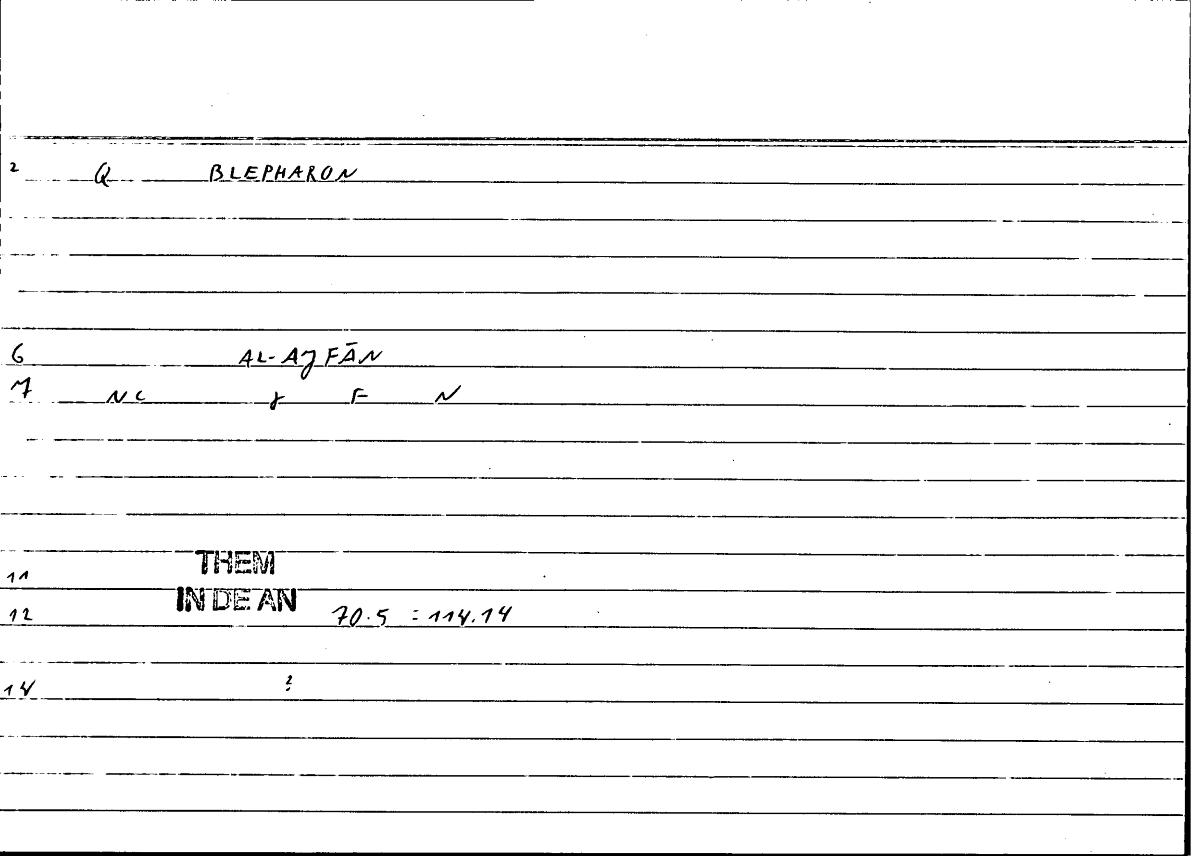 2 Q BLEPHARON
6 AL-AJFĀN
7 NC J F N
11 THEM
IN DE AN
12 70.5 = 114.14
14 ?